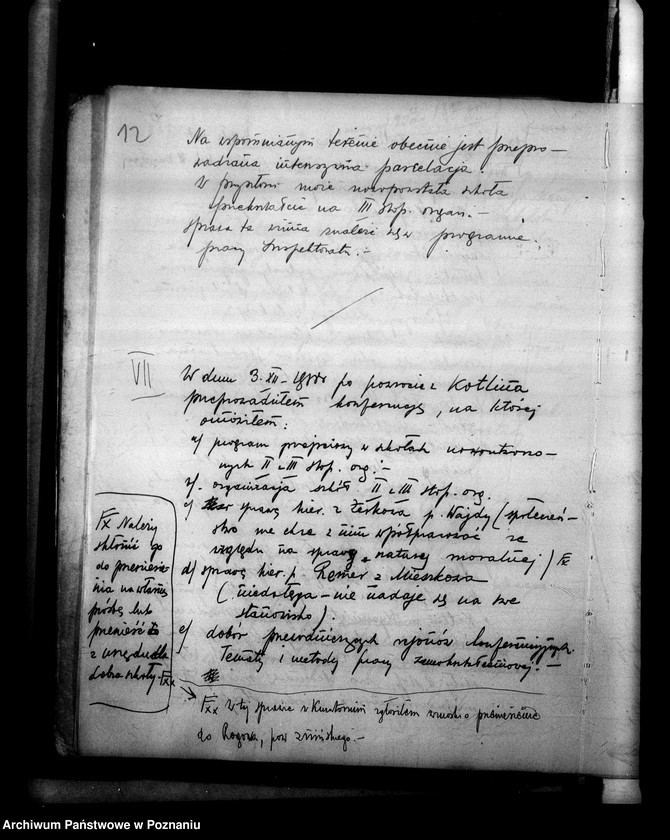 12
Na wspomnianym terenie obecnie jest przepro-
wadzana intensywna parcelacja.
W przyszłości może nowopowstała szkoła
przekształcić na III stop. organ. -
Sprawa ta winna znaleźć się w programie
pracy Inspektoratu. -
VII
W dniu 3. XII - po powrocie z Kotlina
przeprowadziłem konferencję, na której
omówiłem:
a) program przejściowy w szkołach
II i III stop. org. -
b). organizacja szkół II i III stop. org.
c) sprawę kier. z Żerkowa p. Wajdy (społeczeń-
stwo nie chce z nim współpracować ze
względu na sprawę natury moralnej) Fx
d) sprawę kier. p. Remer z Mieszkowa
(niedołęga - nie nadaje się na swe
stanowisko).
e) dobór przewodniczących rejonów konferencyjnych.
Tematy i metody pracy samokształceniowej. -
Fx Należy
skłonić go
do przeniesie-
nia na własną
prośbę lub
przenieść
z urzędu dla
dobra szkoły. Fxx
Fxx W tej sprawie w Kuratorium zgłosiłem wniosek o przeniesienie
do Rogowa, pow. żnińskiego. -
Archiwum Państwowe w Poznaniu